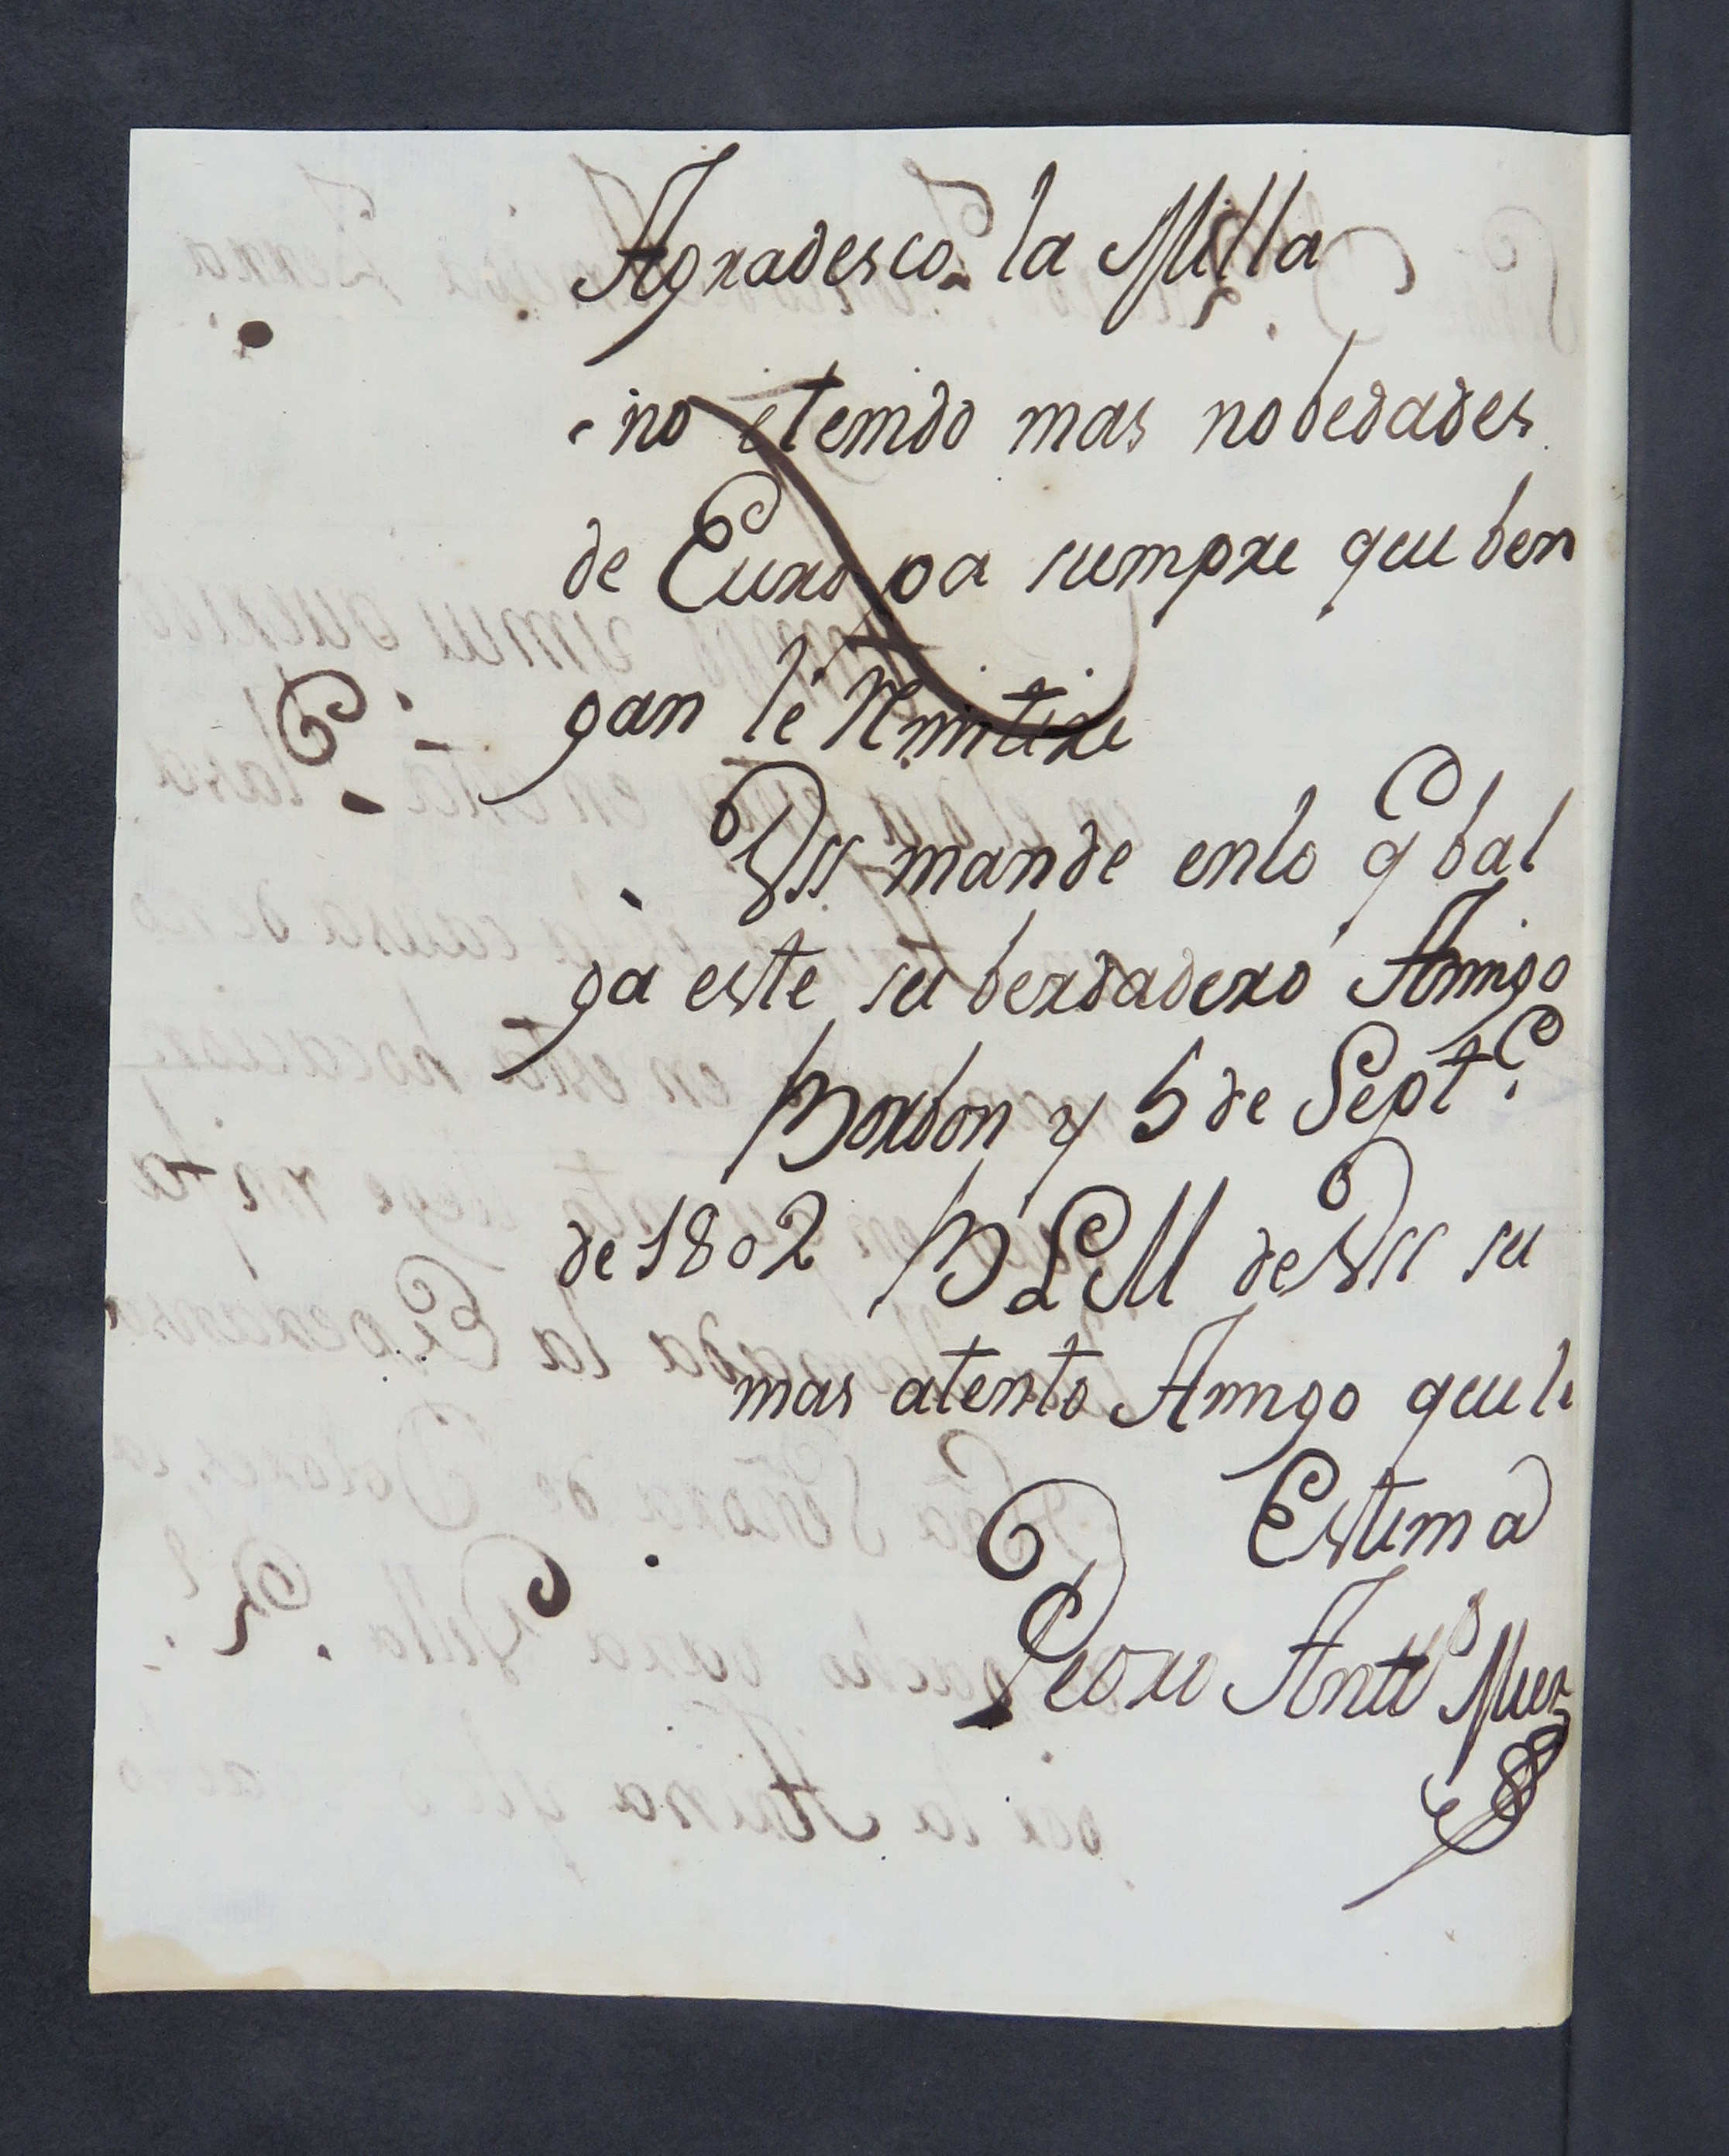 Agradesco la Milla
no etenido mas nobedades
de Europa siempre que ben
gan lé Remitire
Vss mande enlo q bal
ga este su berdadero Amigo
Borbon y 5 de Sept.e
de 1802 BLM de Vss su
mas atento Amigo que le
Estima
Pedro Antto Muz